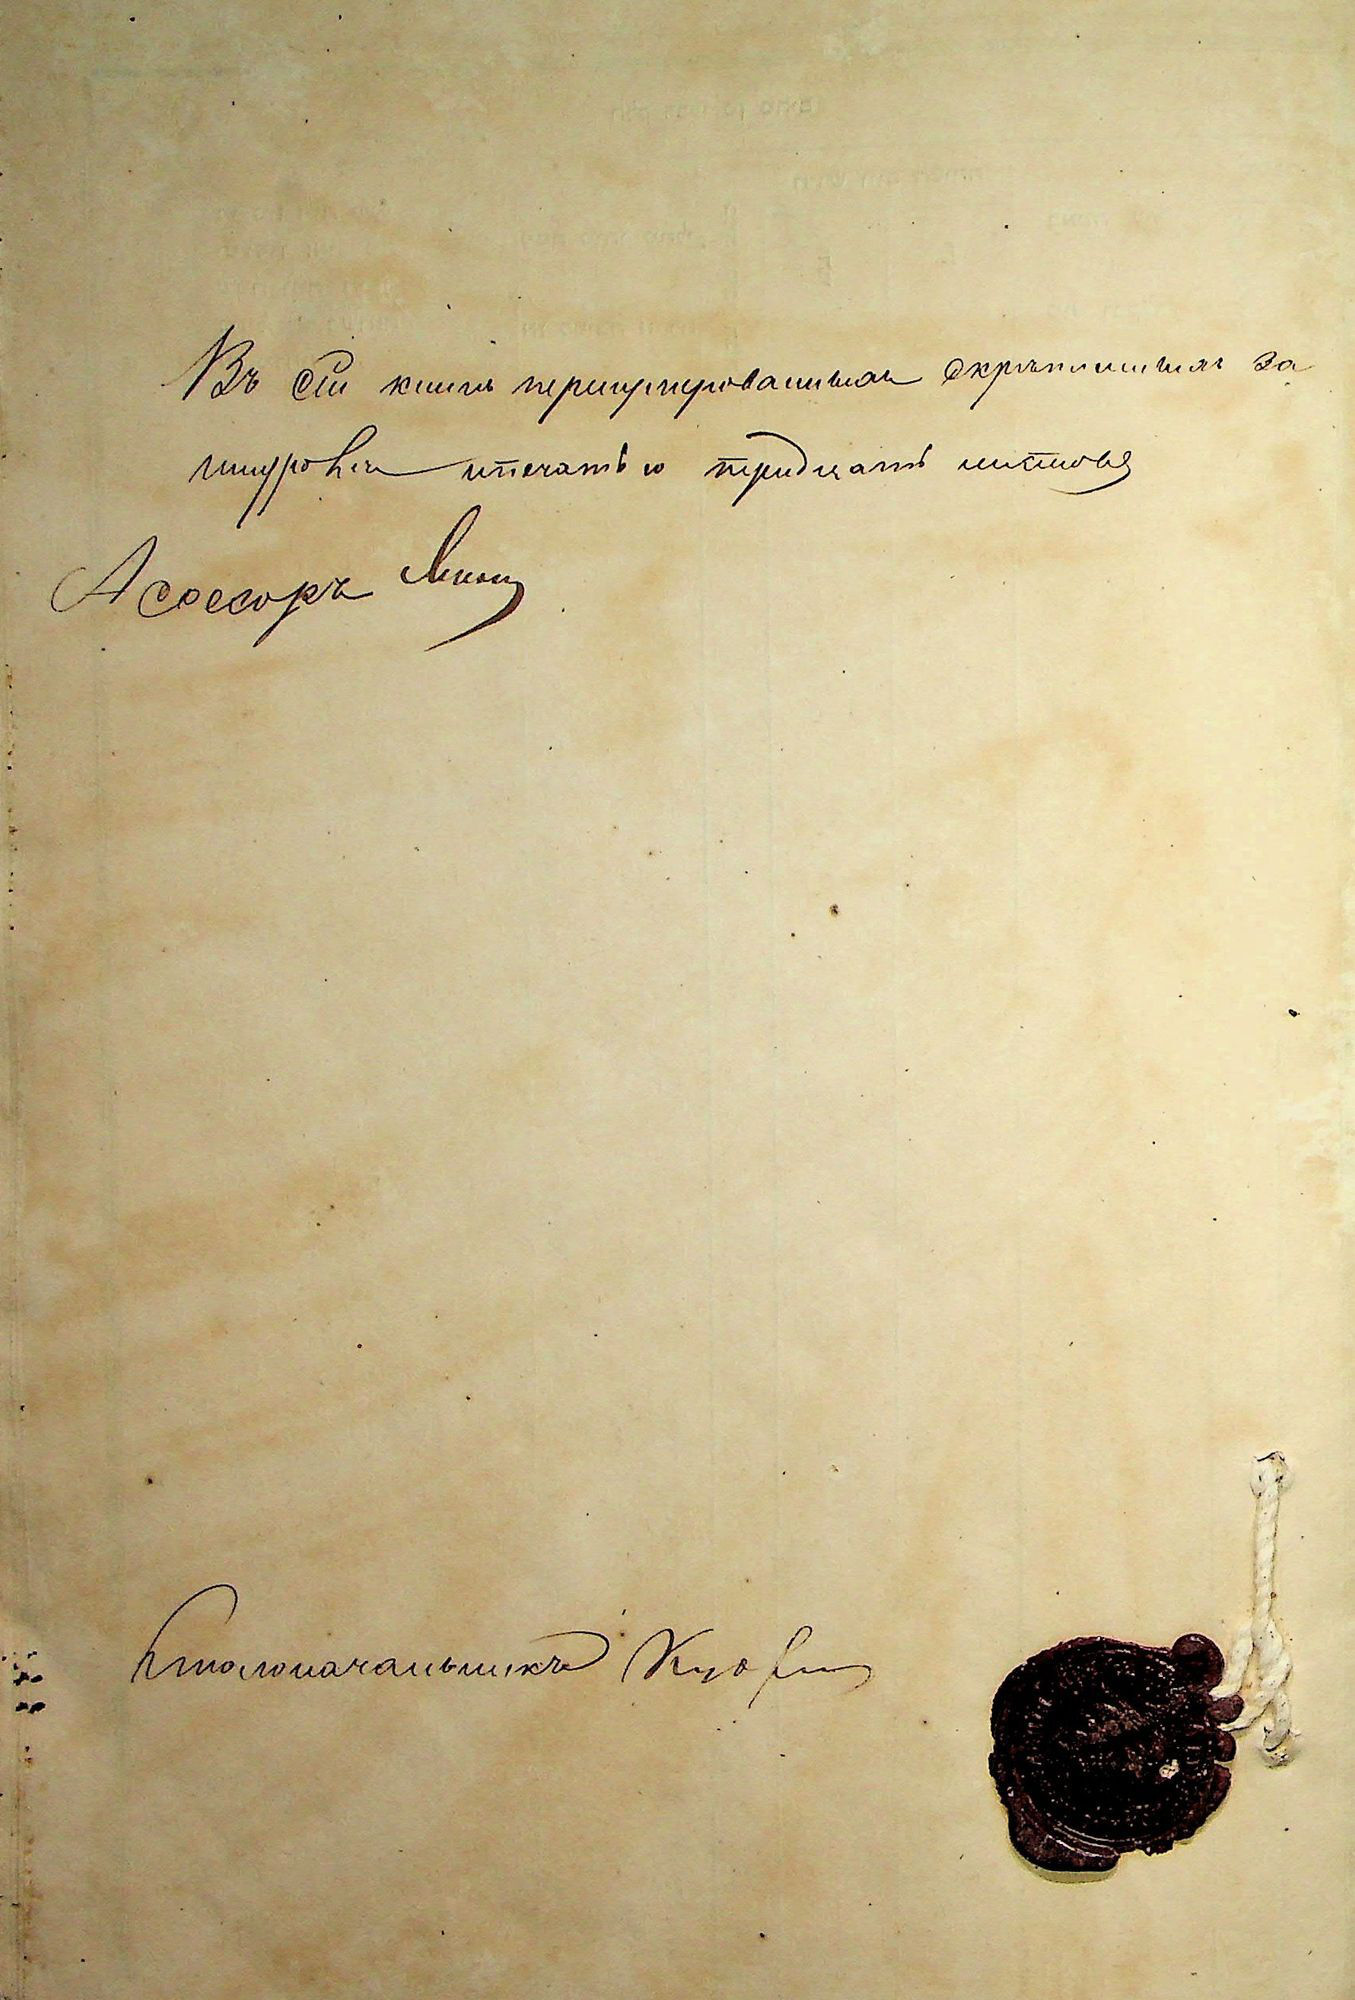 Въ сей книгѣ перенумерованныхъ скрѣпленныхъ за
шнуромъ и печатью тридцать листовъ
Асессоръ
Столоначальникъ